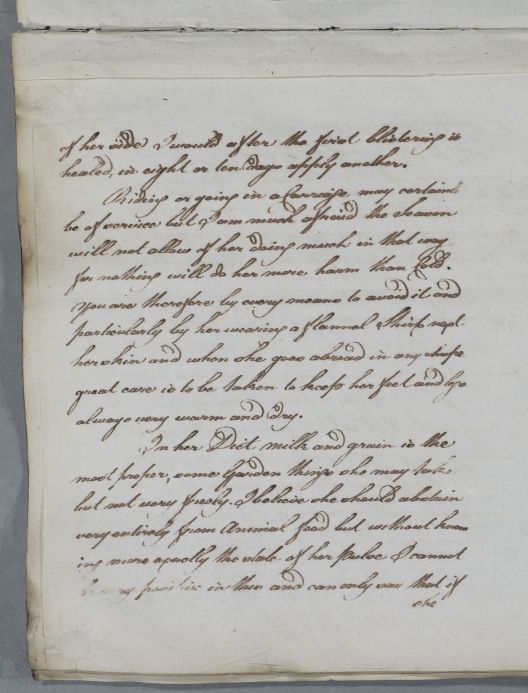 of her side I would after the first blistering is
healed, in eight or ten days apply another.
Riding or going in a Carriage may certainly
be of service but I am much afraid the season
will not allow of her doing much in that way
for nothing will do her more harm than Cold.
You are therefore by every means to avoid it and
particularly by her wearing a flannel Shirt next
her skin and when she goes abroad in any shape
great care is to be taken to keep her feet and legs
always very warm and dry.
In her Diet milk and grain is the
most proper, some Garden things she may take
but not very freely. I believe she should abstain
very entirely from Animal food but without know
ing more exactly the state of her Pulse I cannot
be very positive in this and can only say that if
she